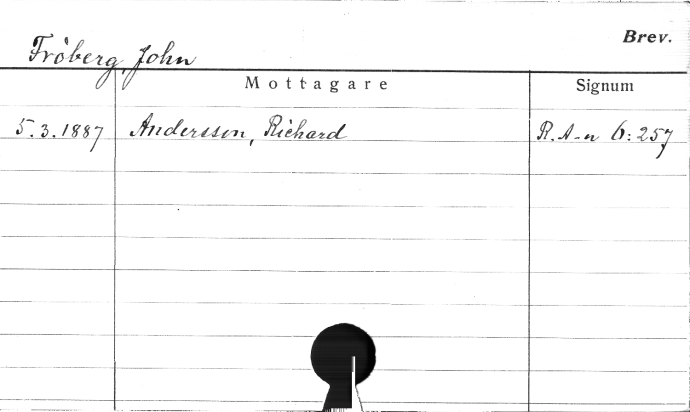 Brev.
Fröberg, John
Mottagare Signum
5.3.1887 Andersson, Richard R. A-n 6:257